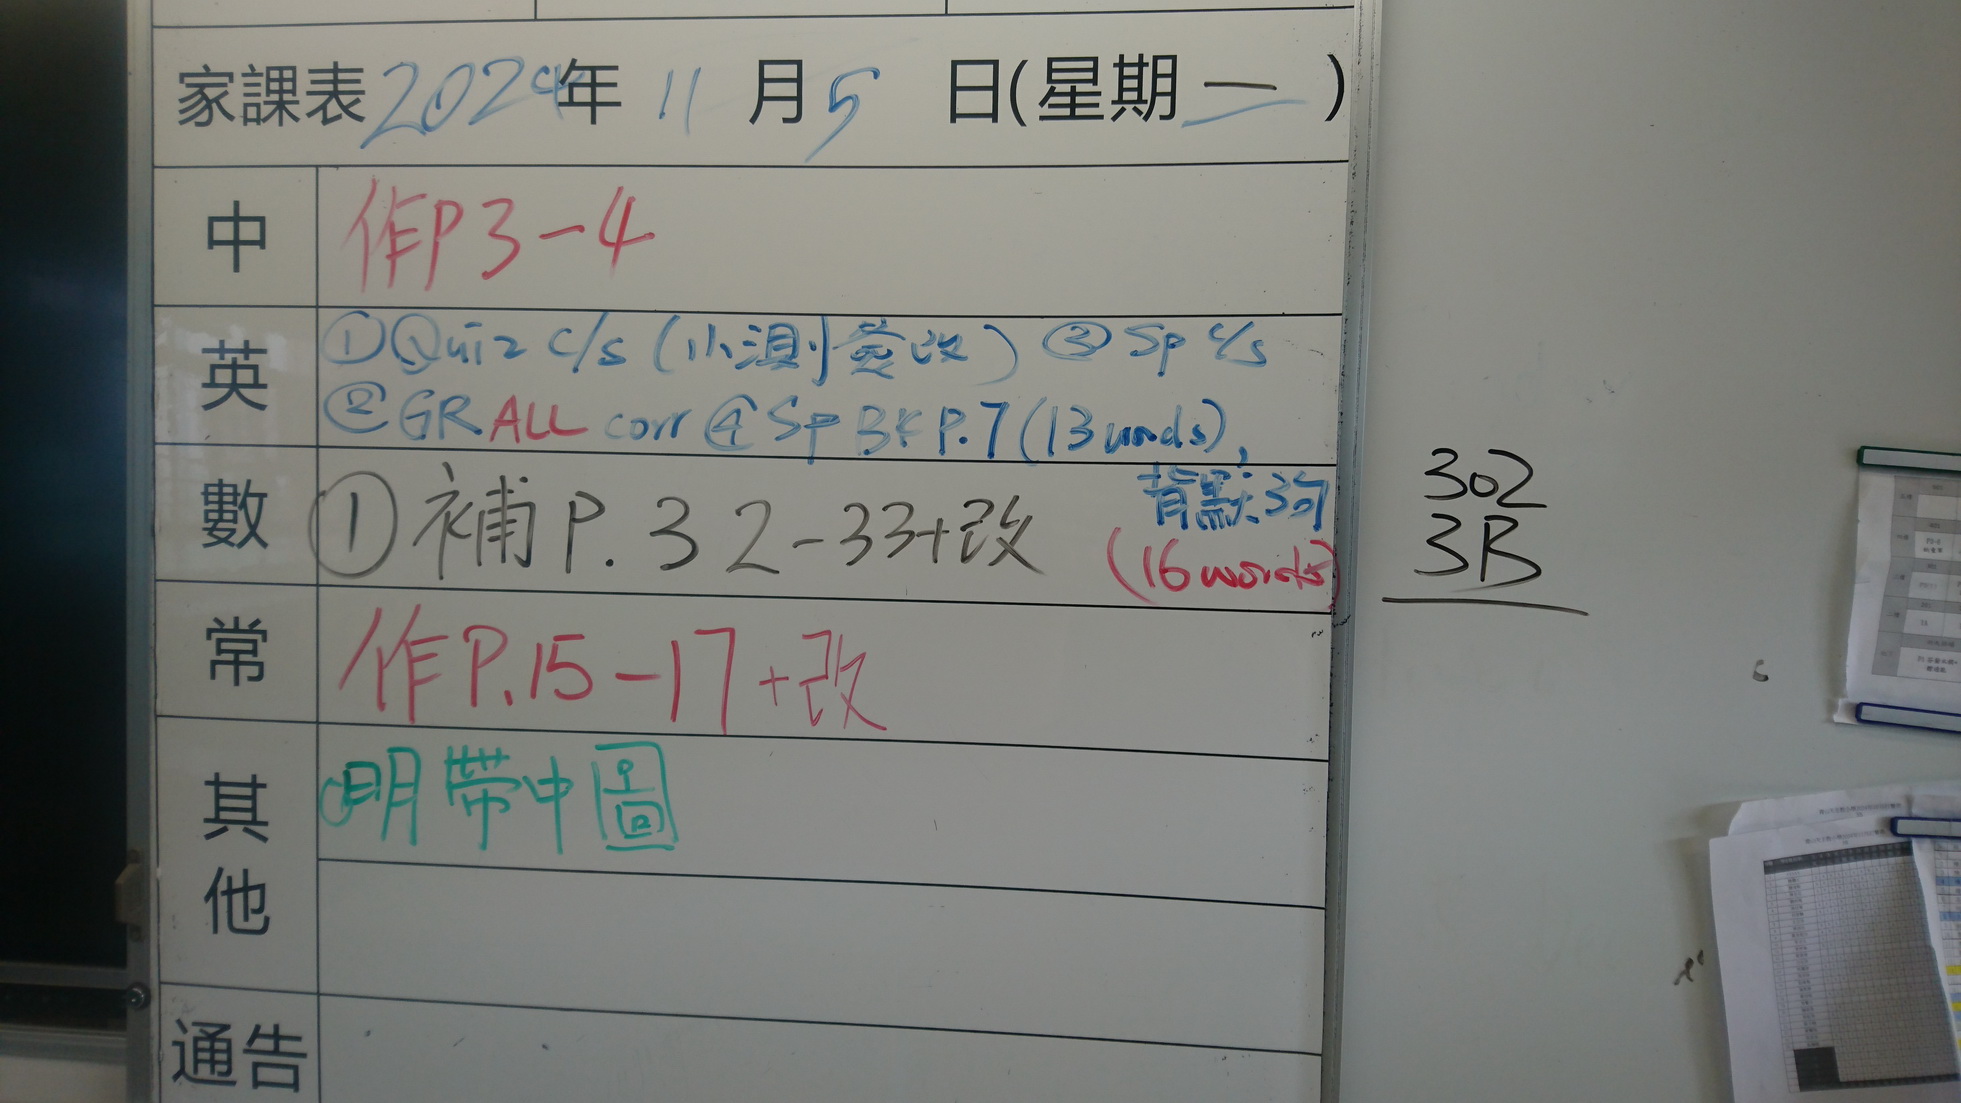 家課表 2024年 11月5日(星期二)
中 作P3-4
英 ①Quiz c/s (小測簽改) ③Sp c/s
②GR ALL corr ④Sp BK P.7 (13 words),
背默詞
(16 words)
數 ①補P.32-33+改
常 作P.15-17+改
其他 ①明帶中圖
通告
302
3B